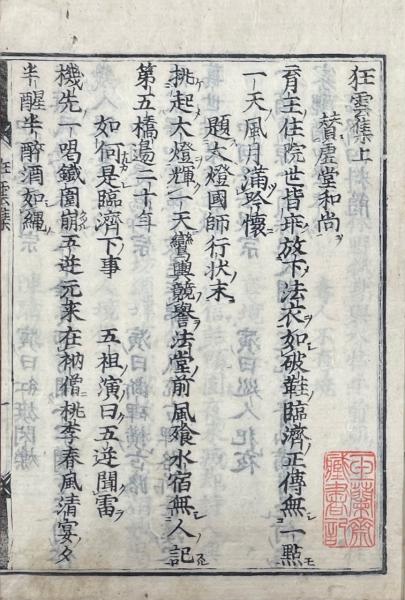 狂雲集上
賛虚堂和尚
育王住院世皆乖放下法衣如破鞋臨濟正傳無一點
一天風月滿吟懷
題大燈國師行状末
挑起大燈輝一天鸞輿競譽法堂前風飱水宿無人記
第五橋邊二十年
如何是臨濟下事 五祖演曰五逆聞雷
機先一喝鐵圍崩五逆元来在衲僧桃李春風清宴夕
半醒半醉酒如繩
狂雲集
一
藏書記